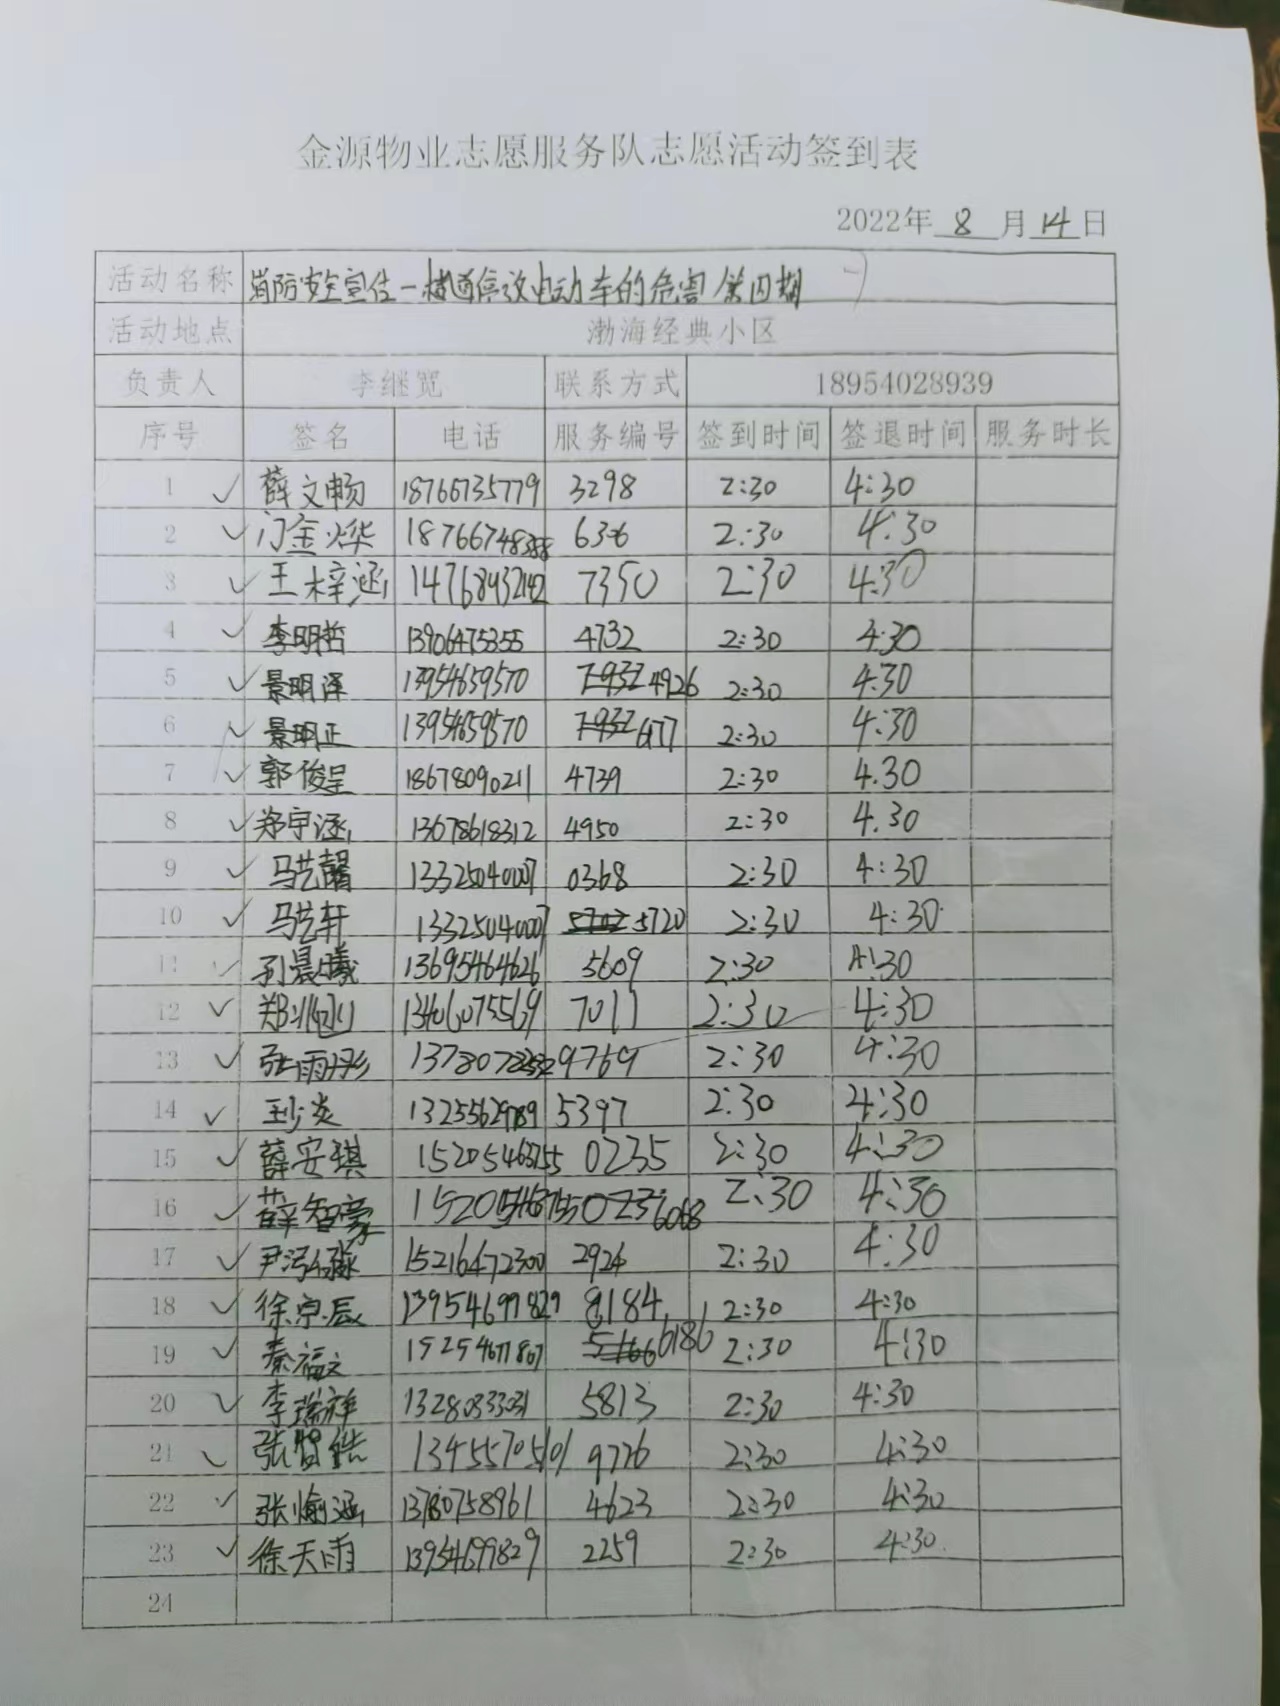 金源物业志愿服务队志愿活动签到表
2022年 8 月 14 日
活动名称 消防安全宣传一楼道停放电动车的危害 第四期
活动地点 渤海经典小区
负责人 李继宽 联系方式 18954028939
序号 签名 电话 服务编号 签到时间 签退时间 服务时长
1 薛文畅 18766735779 3298 2:30 4:30
2 门金烨 2:30 4:30
3 王梓涵 14768932142 7350 2:30 4:30
4 李明哲 13906475355 4732 2:30 4:30
5 景明泽 13954659570 4926 2:30 4:30
6 景明正 13954659570 2:30 4:30
7 郭俊呈 18678090211 4739 2:30 4.30
8 郑宇涵 13678618312 4950 2:30 4.30
9 马艺馨 13325040007 0368 2:30 4:30
10 马艺轩 13325040007 5720 2:30 4:30
11 晨曦 13695464626 5609 2:30 4:30
12 郑 13406075569 7011 2:30 4:30
13 张雨彤 9769 2:30 4:30
14 13255629789 5397 2:30 4:30
15 薛安琪 15205463755 0235 2:30 4:30
16 薛智豪 6068 2:30 4:30
17 尹 15216472300 2926 2:30 4:30
18 徐 辰 13954699829 8184 2:30 4:30
19 秦福文 15254677867 6186 2:30 4:30
20 李瑞祥 13280333031 5813 2:30 4:30
21 张 13455705601 9726 2:30 4:30
22 张愉涵 13780758961 4623 2:30 4:30
23 徐天雨 13954699829 2259 2:30 4:30
24